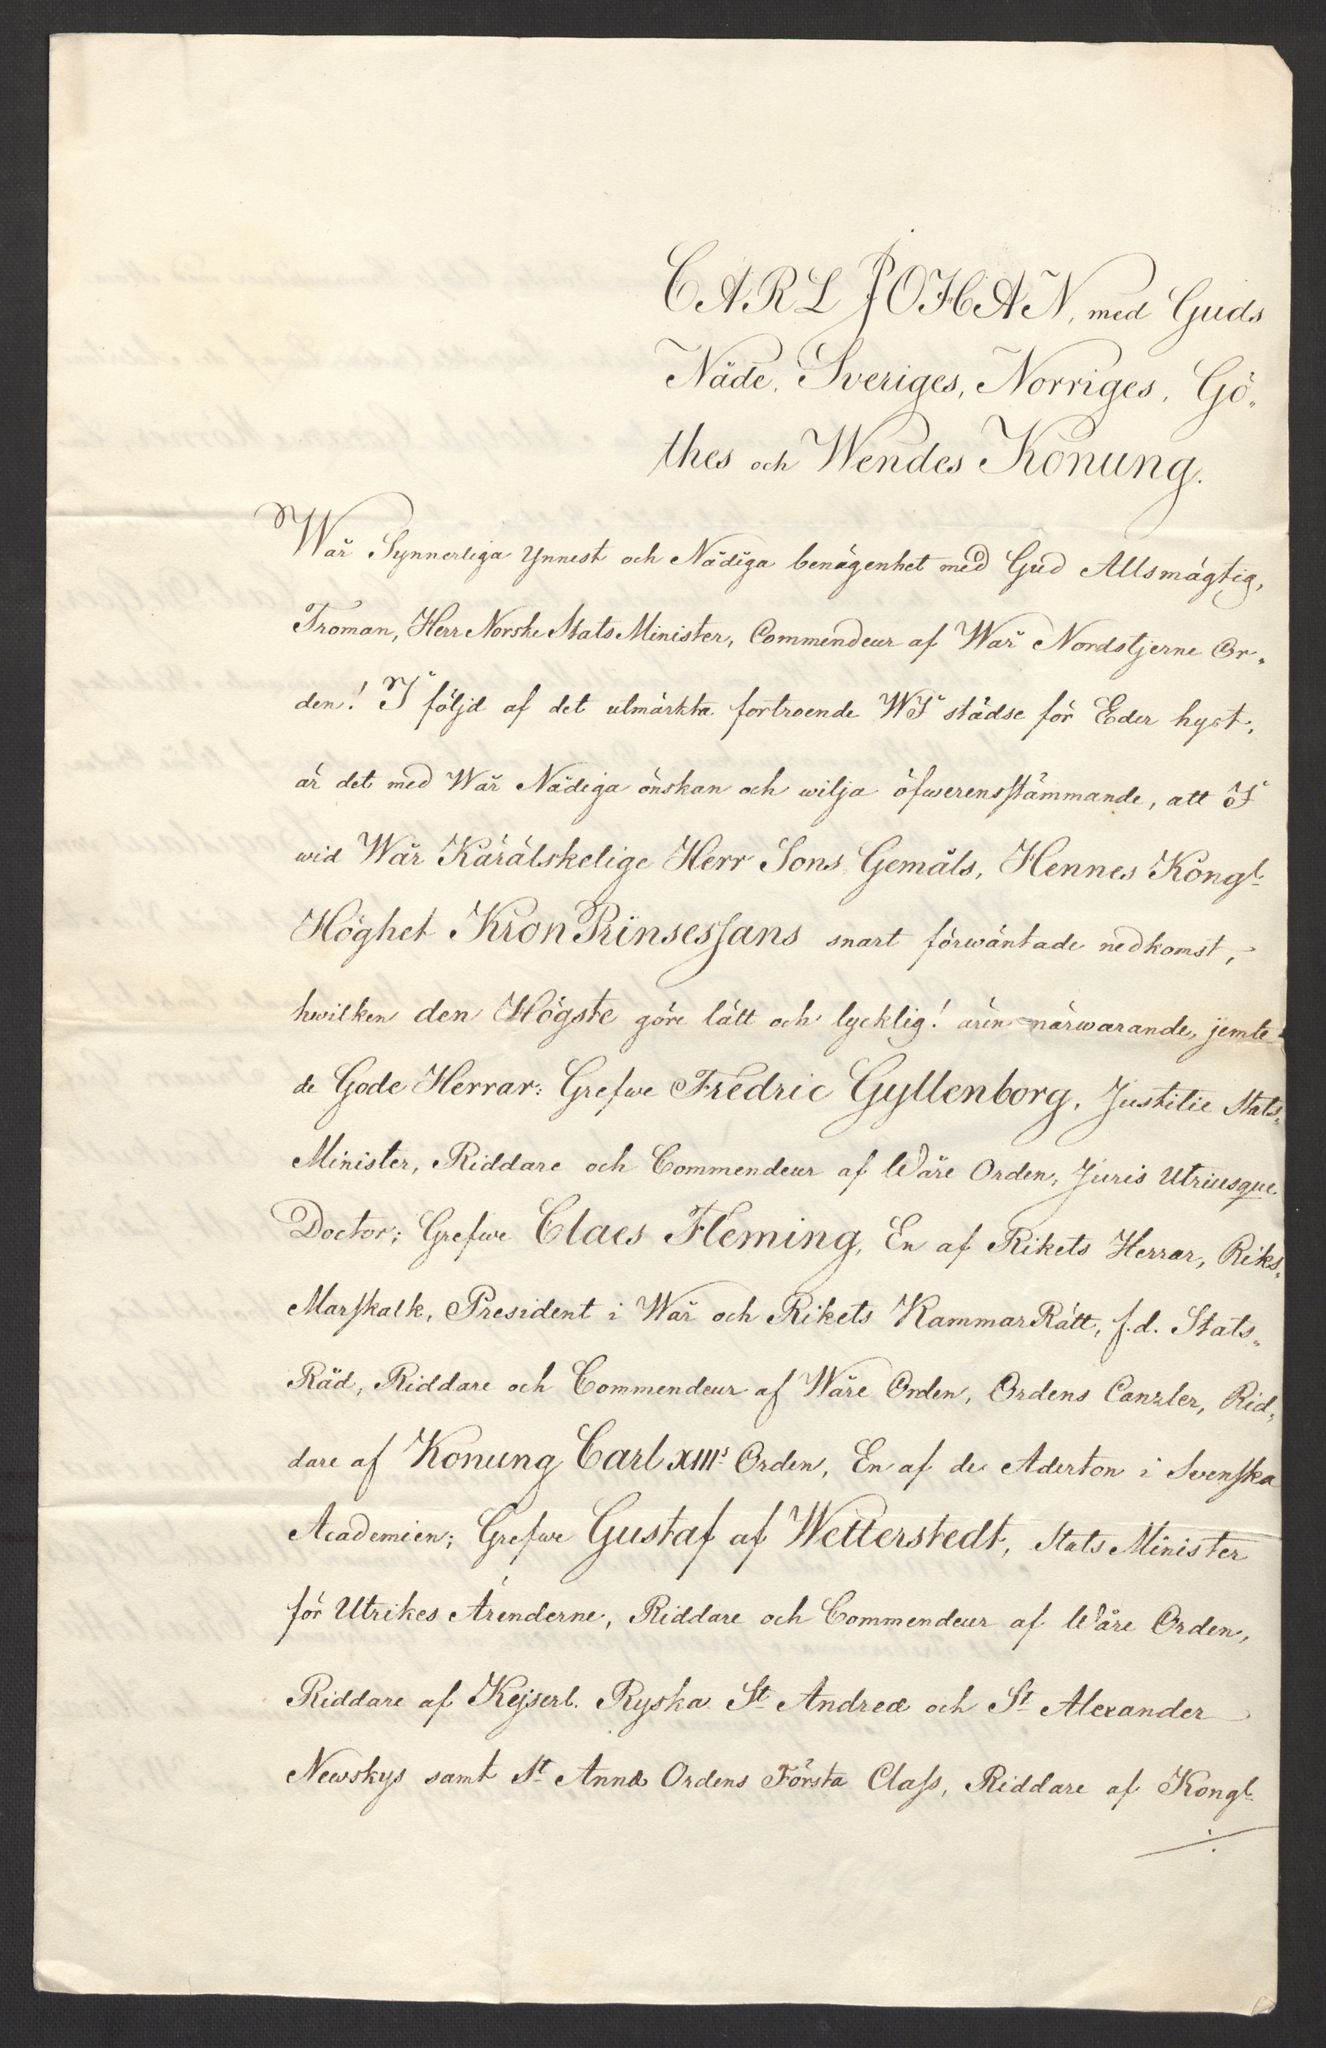 CARL JOHAN, med Guds
Nåde, Sveriges, Norriges, Gö-
thes och Wendes Konung.
Wår Synnerliga ynnest och Nådiga benägenhet med Gud Allsmägtig,
Troman, Herr Norske Stats Minister, Commendeur af Wår Nordstjerne Or-
den! I följd af det utmärkta förtroende WI städse för Eder hyst,
är det med Wår Nådiga önskan och wilja öfwerensstämmande, att I
wid Wår Käräskelige Herr Sons Gemåls, Hennes Kongl.
Höghet KronPrinsessans snart förwäntade nedkomst,
hwilken den Högste göre lätt och lycklig! ären närwarande, jemte
de Gode Herrar: Grefwe Fredric Gyllenborg, Justitie Stats-
Minister, Riddare och Commendeur af Wåre Orden, Juris Utriusque
Doctor; Grefwe Claes Fleming, En af Rikets Herrar, Riks-
Marskalk, President i Wår och Rikets KammarRätt, f.d. Stats-
Råd, Riddare och Commendeur af Wåre Orden, Ordens Canzler, Rid-
dare af Konung Carl XIIIs Orden, En af de Aderton i Svenska
Academien; Grefwe Gustaf af Wetterstedt, Stats Minister
för Utrikes Ärenderne, Riddare och Commendeur af Wåre Orden,
Riddare af Kejserl. Ryska St. Andreæ och St Alexander
Newskys samt St. Annæ Ordens Första Class, Riddare af Kongl.